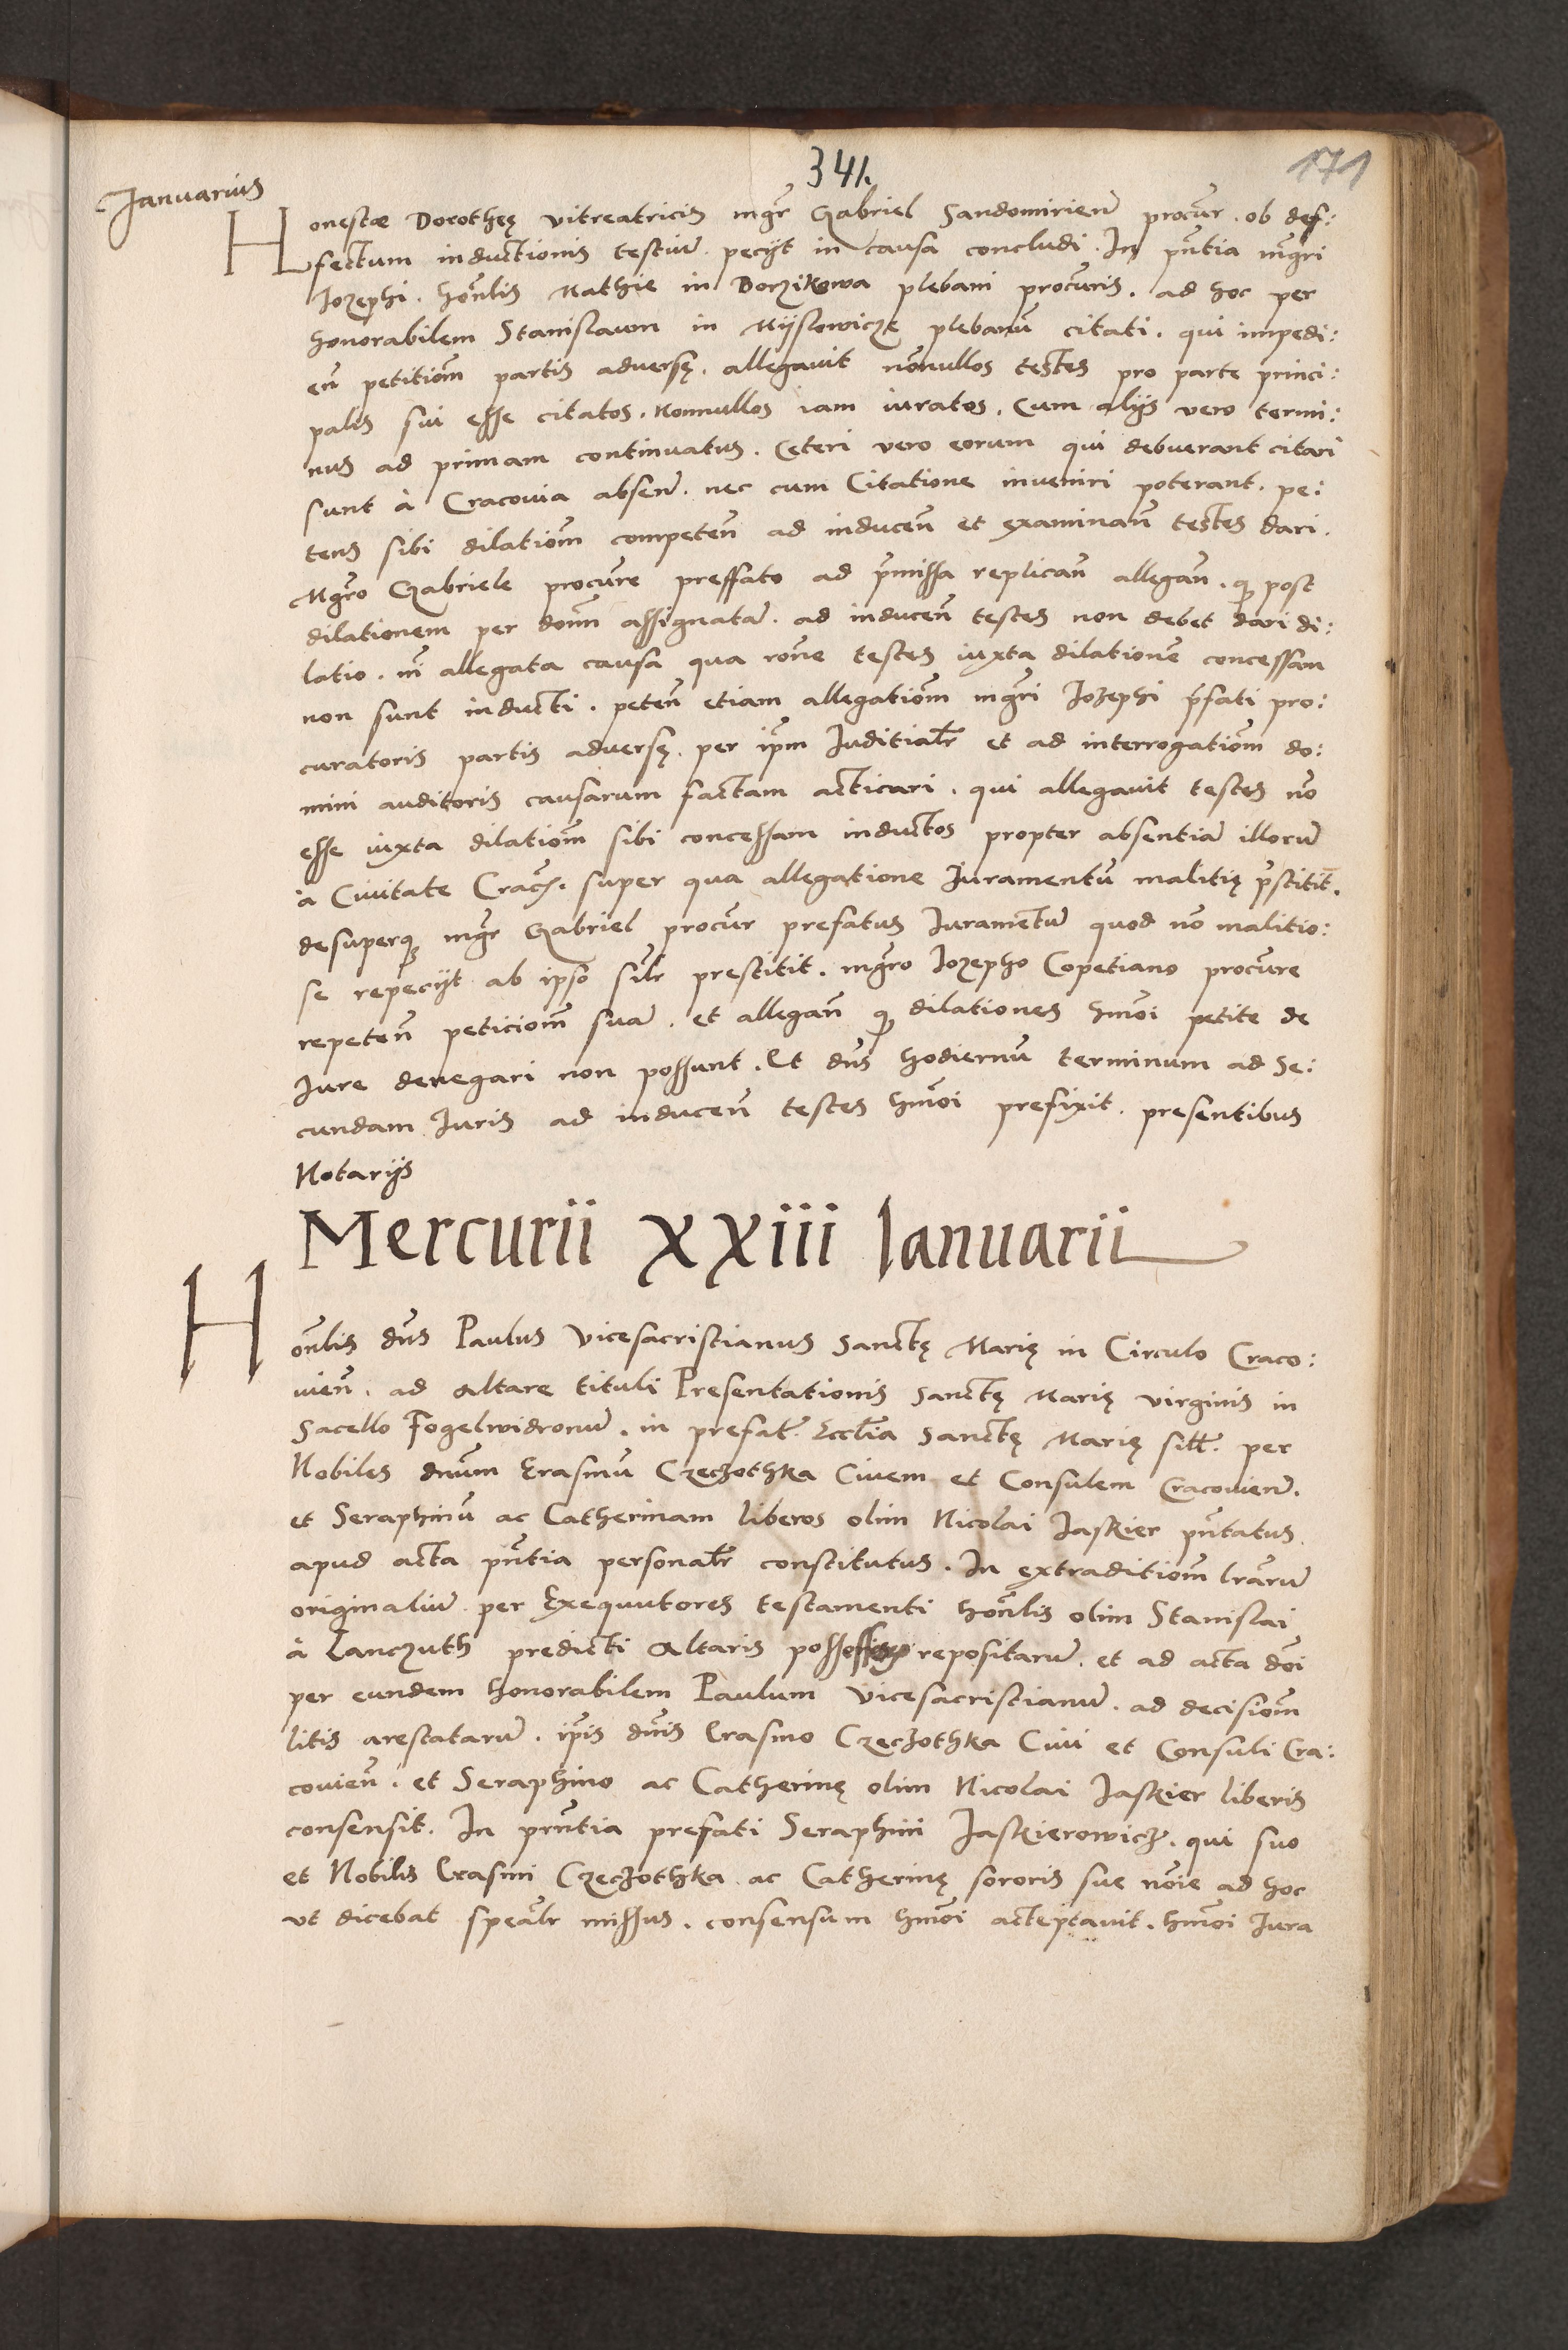 341.
171
Januarius
Honestæ Dorotheę vitreatricis mgr̄ Gabriel Sandomirien̄ procur̄. ob def:
fectum inductionis testium̄. pecijt in causa concludi. In pn̄tia mgr̄i
Jozephi. hon̄lis Mathie in Dorzikowa plebani procur̄is. ad hoc per
honorabilem Stanislaum in Mijslowicze plebanū citati. qui impedi:
en̄ petitiōm partis adversę. allegavit nōnullos testes pro parte princi:
palis sui esse citatos. Nonnullos iam iuratos. Cum alijs vero termi:
nus ad primam continuatus. Ceteri vero eorum qui debuerant citari
sunt à Cracovia absen̄. nec cum Citatione inveniri poterant. pe:
tens sibi dilatiōm competen̄ ad inducen̄ et examinan̄ testes dari.
Mgr̄o Gabriele procur̄e preffato ad p̄missa replican̄ allegan̄. q̨ post
dilationem per don̄m assignatam̄. ad inducen̄ testes non debet dari di:
latio. n̄i allegata causa qua rōne testes iuxta dilationē concessam
non sunt inducti. peten̄ etiam allegatiōm mgr̄i Jozephi p̄fati pro:
curatoris partis adversę. per ip̄m Juditialr̄ et ad interrogatiōm do:
mini auditoris causarum factam acticari. qui allegavit testes nō
esse iuxta dilatiōm sibi concessam inductos propter absentiam̄ illorū
à Civitate Crac̄. super qua allegatione Juramentū malitię p̄stitit.
desuperq̨ mgr̄ Gabriel procur̄ prefatus Juramentum̄ quod nō malitio:
se repecijt ab ipso sil̄r prestitit. mgr̄o Jozepho Copetiano procur̄e
repeten̄ peticiōm suam̄. et allegan̄ q̨ dilationes hmōi petite de
Jure denegari non possunt. Et dn̄s hodiernū terminum ad Se:
cundam Juris ad inducen̄ testes hmōi prefixit. presentibus
Notarijs
Mercurii XXiii Ianuarii
Hon̄lis dn̄s Paulus vicesacristianus Sanctę Marię in Circulo Craco:
vien̄. ad Altare tituli Presentationis Sanctę Marię virginis in
Sacello Fogelwidronum̄. in prefat̄. Eccl̄ia Sanctę Marię sit̄. per
Nobiles dn̄um Erasmū Czeczothka Civem et Consulem Cracovien̄.
et Seraphinū ac Catherinam liberos olim Nicolai Jaskier pn̄tatus.
apud acta pn̄tia personalr̄ constitutus. In extraditiōm lr̄arum̄
originalium̄ per Exequutores testamenti hon̄lis olim Stanislai
à Lanczuth predicti Altaris repositarum̄. et ad acta dōi
per eundem honorabilem Paulum vicesacristianum̄. ad decisiōm
litis arestatarum̄. ip̄is dn̄is Erasmo Czeczothka Civi et Consuli Cra:
covien̄. et Seraphino ac Catherinę olim Nicolai Jaskier liberis
consensit. In prn̄tia prefati Seraphini Jaskierowicz. qui suo
et Nobilis Erasmi Czeczothka ac Catherinę sororis sue nōie ad hoc
vt dicebat speal̄r missus. consensum hmōi acceptavit. hmōi Jura